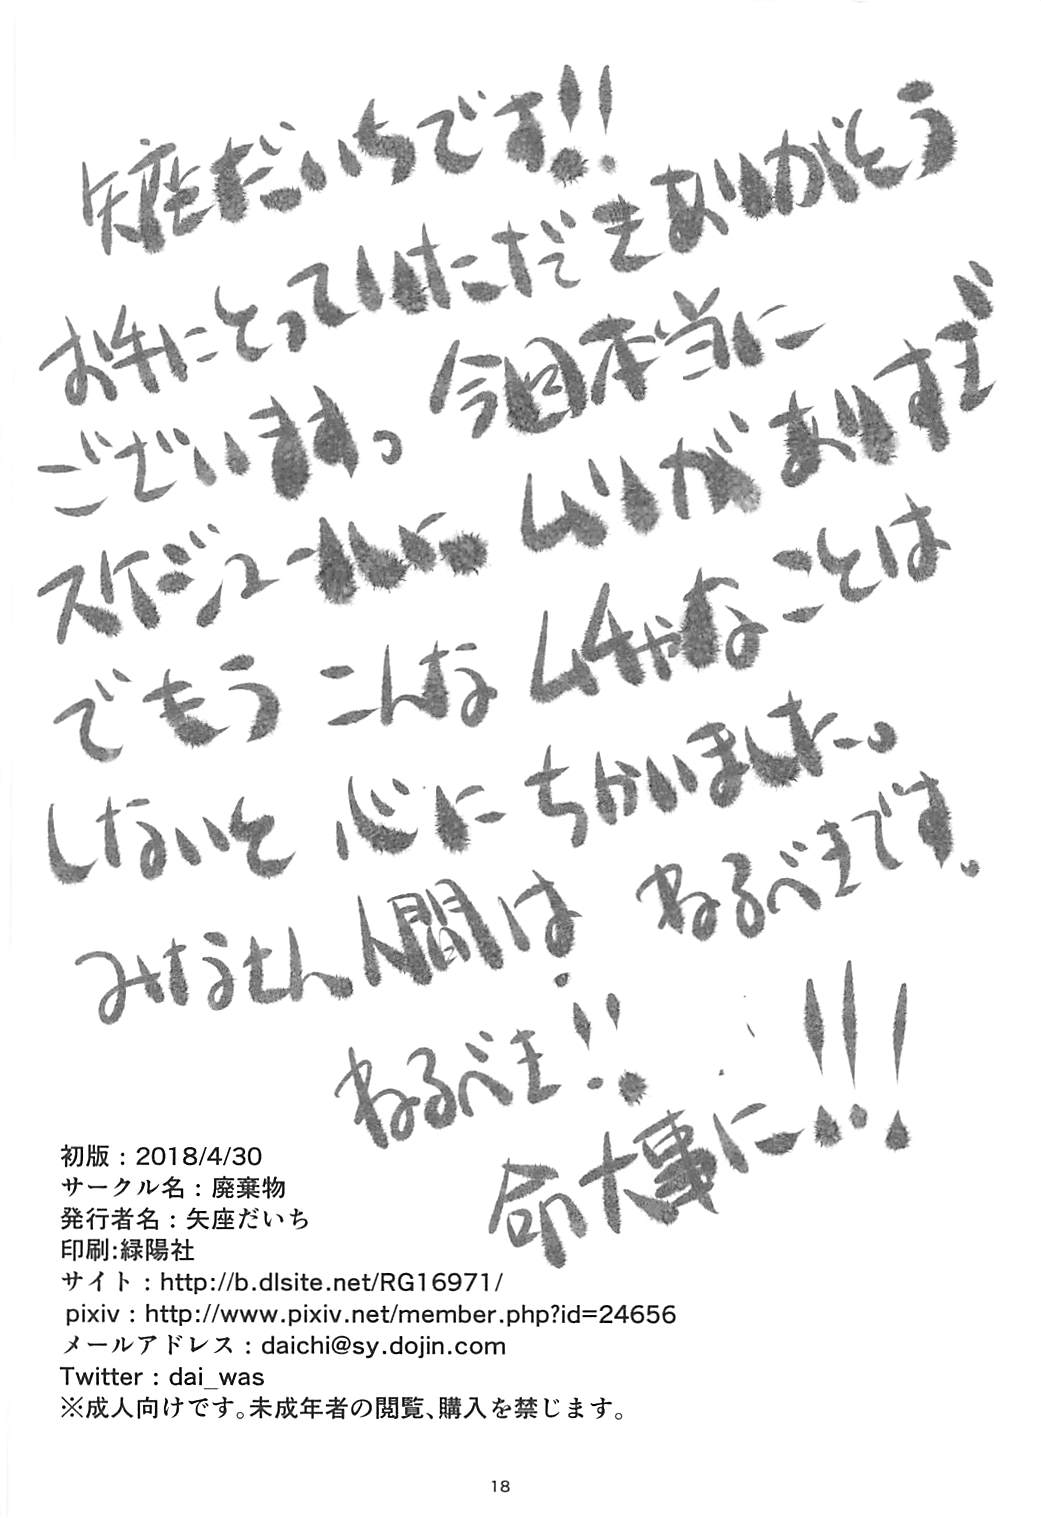 矢座だいちです!!
お手にとっていただきありがとう
ございます。今回本当に
スケジュールに、ムリがありすぎ
でもう こんな ムチャなことは
しないと 心に ちかいました。
みなさん人間は ねるべきです。
ねるべき!!
命大事に…!!!
初版：2018/4/30
サークル名：廃棄物
発行者名：矢座だいち
印刷:緑陽社
サイト：http://b.dlsite.net/RG16971/
pixiv：http://www.pixiv.net/member.php?id=24656
メールアドレス：daichi@sy.dojin.com
Twitter：dai_was
※成人向けです。未成年者の閲覧、購入を禁じます。
18